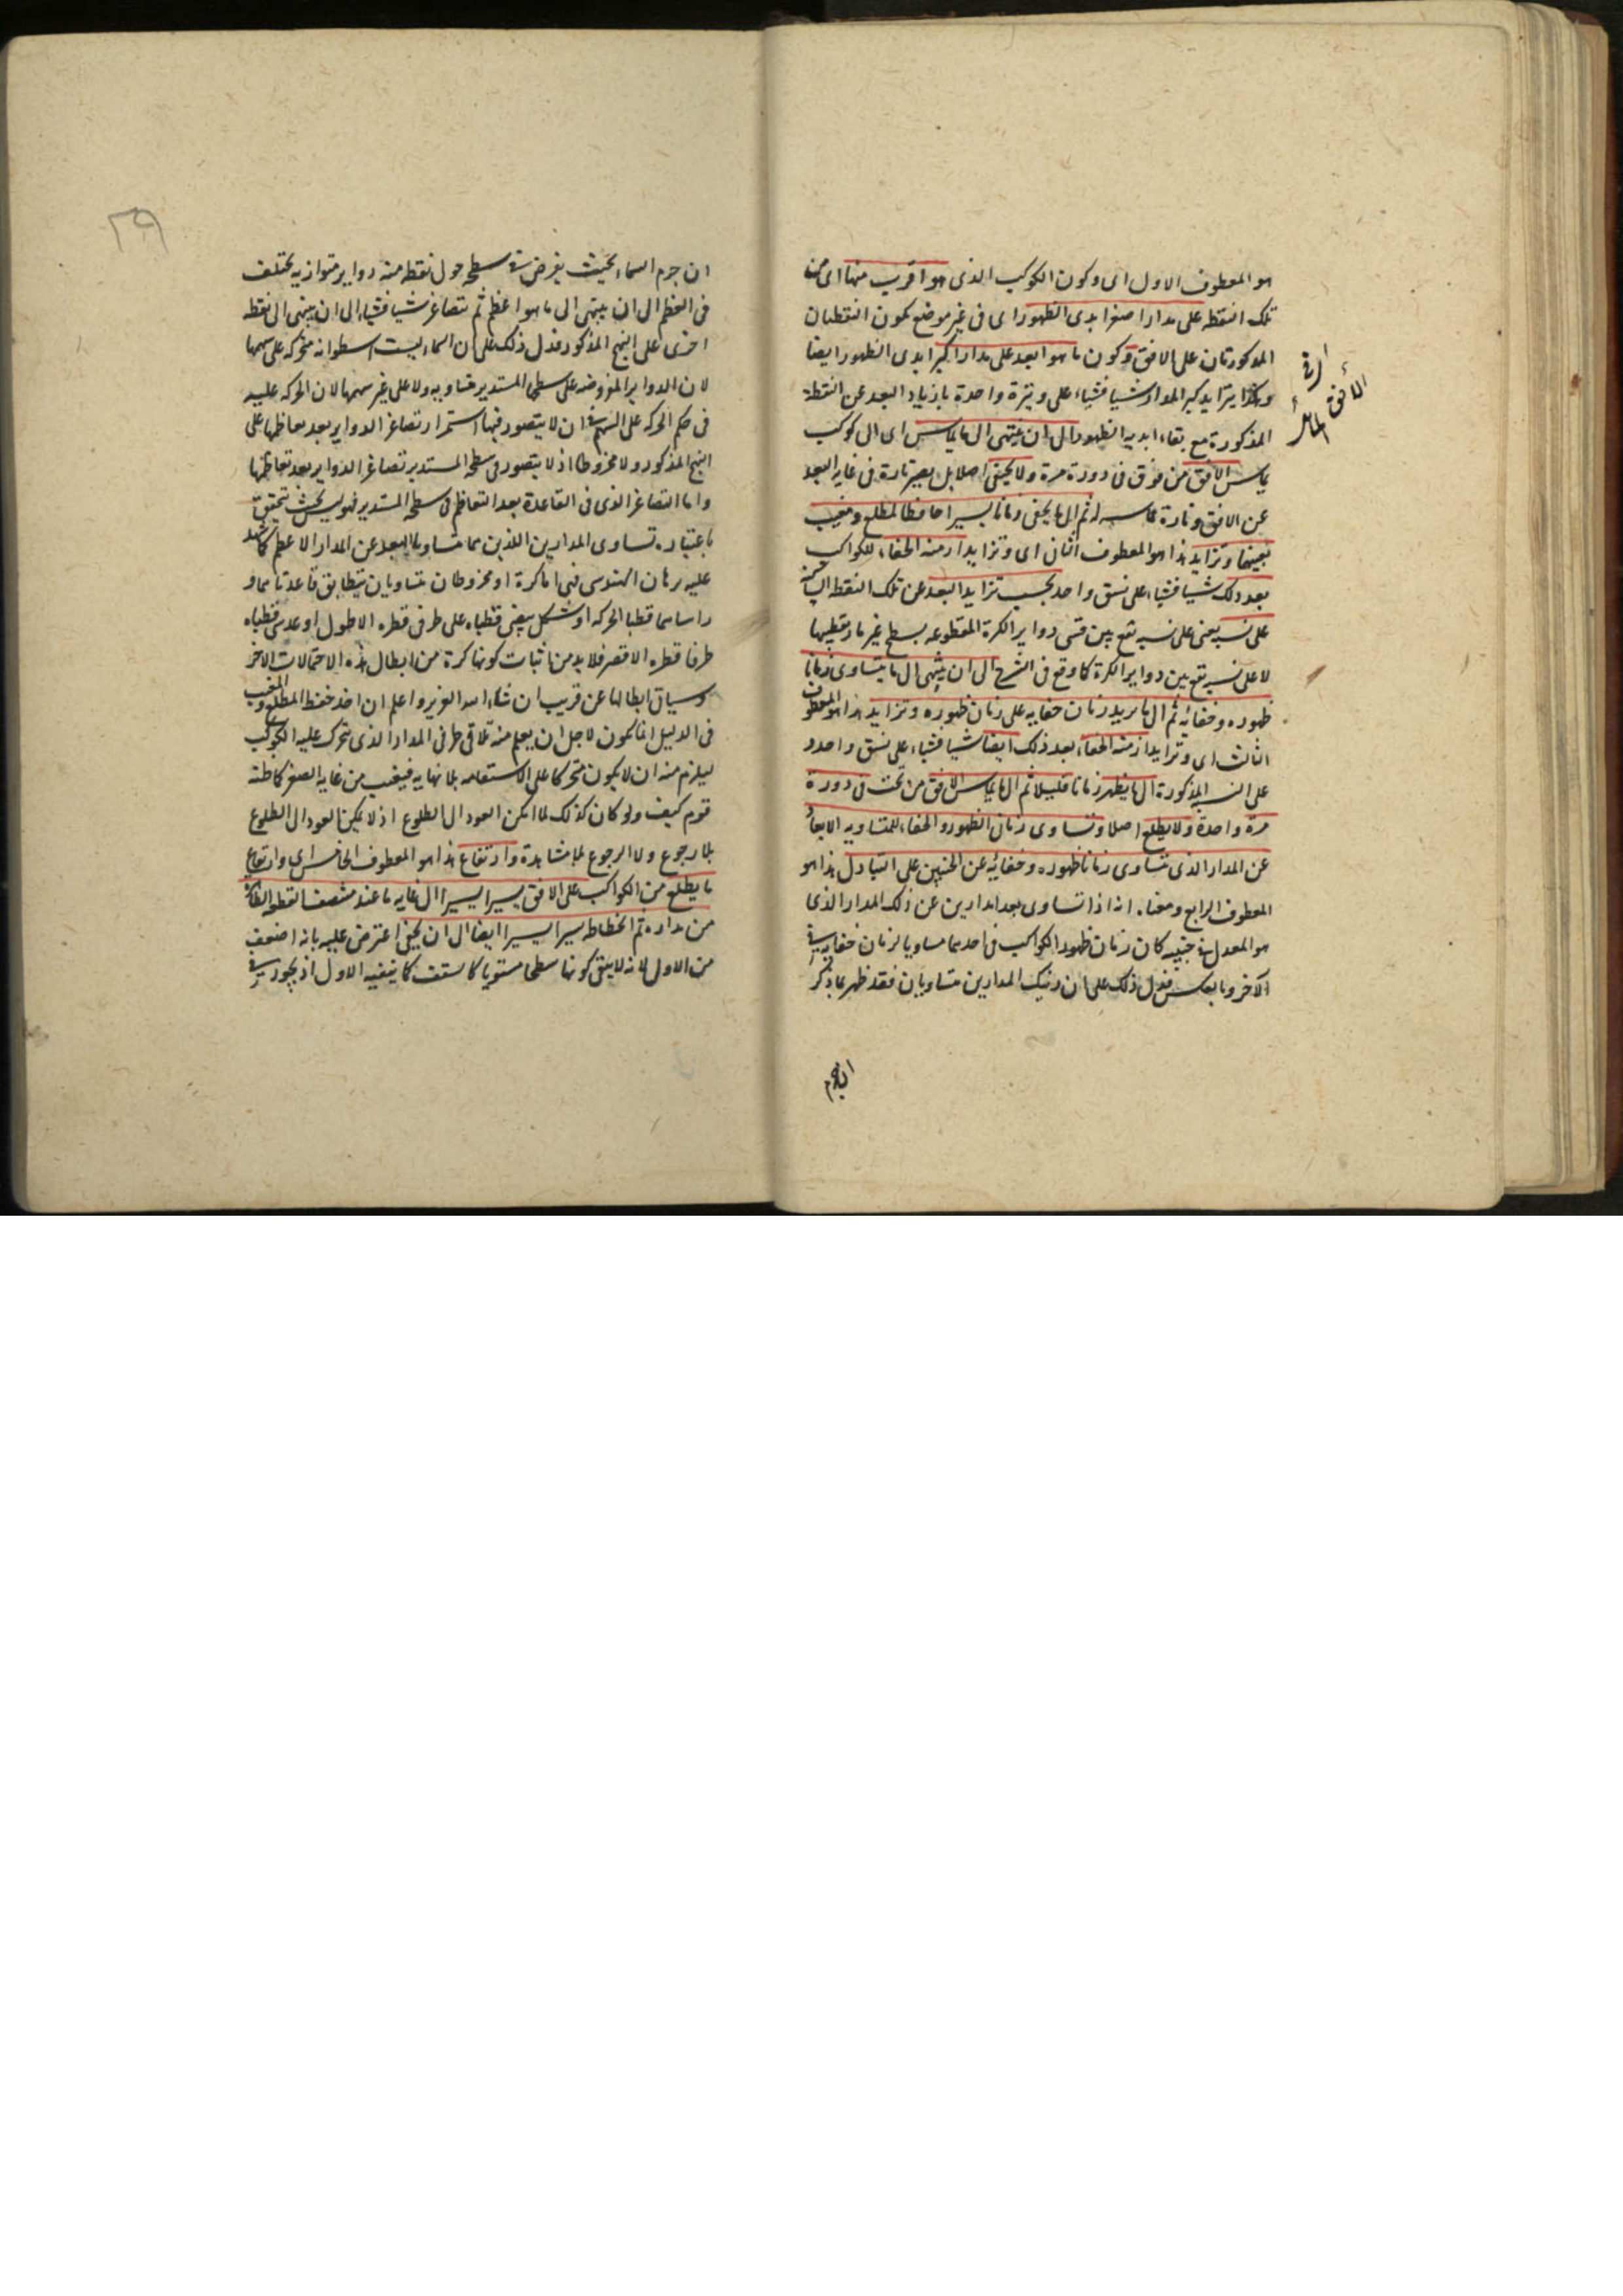 هو المعطوف الاول اى وكون الكوكب الذى هو اقرب منها اى من
تلك النقطة على مدار اصغر ابدى الظهور اى فى غير موضع تكون النقطتان
المذكورتان على الافق وكون ما هو ابعد على مدار اكبر ابدى الظهور ايضا
وهكذا يتزايد كبر المدار شيا فشياء على وتيرة واحدة بازدياد البعد عن النقطة
المذكورة مع بقاء ابديه الظهور الى ان ينتهى الى ما يماس اى الى كوكب
يماس الافق من فوق فى دورة مرة ولا يخفى اصلا بل يصير تارة فى غايه البعد
عن الافق وتارة مماسه له ثم الى ما يخفى زمانا يسيرا حافظا لمطلع ومغيب
بعينهما وتزايد هذا هو المعطوف الثانى اى وتزايد ازمنه الخفاء للكواكب
بعد ذلك شيا فشياء على نسق واحد بحسب تزايد البعد عن تلك النقطه
على نسبه يعنى على نسبه تقع بين قسى دواير الكرة المقطوعه بسطح غير مار بقطبيها
لا على نسبه تقع بين دواير الكرة كما وقع فى الشرح الى ان ينتهى الى ما يتساوى زمانا
ظهوره وخفائه ثم الى ما يزيد زمان خفايه على زمان ظهوره وتزايد هذا هو المعطوف
الثالث اى وتزايد ازمنه الخفاء بعد ذلك ايضا شيا فشياء على نسق واحد و
على النسبه المذكورة الى ما يظهر زمانا قليلا ثم الى ما يماس الافق من تحت فى دورة
مرة واحدة ولا يطلع اصلا وتساوى زمان الظهور والخفاء للمتساويه الابعاد
عن المدار الذى يتساوى زمانا ظهوره وخفائه عن الجنبين على التبادل هذا هو
المعطوف الرابع ومعناه انه اذا تساوى بعدا مدارين عن ذلك المدار الذى
هو المعدل فى جنبيه كان زمان ظهور الكواكب فى احدهما مساويا لزمان خفايه فى
الآخر وبالعكس فدل ذلك على ان ذينك المدارين متساويان فقد ظهر بما ذكر
الافق المائل
ان جرم
٢٩
ان جرم السماء بحيث يفرض فى سطحه حول نقطه منه دواير متوازيه تختلف
فى العظم الى ان ينتهى الى ما هو اعظم ثم تتصاغر شيا فشياء الى ان ينتهى الى نقطه
اخرى على النهج المذكور فدل ذلك على ان السماء ليست اسطوانه متحركه على سهمها
لان الدواير المفروضه على سطحها المستدير متساويه ولا على غير سهمها لان الحركه عليه
فى حكم الحركه على السهم فى ان لا يتصور فيها استمرار تصاغر الدواير بعد تعاظمها على
النهج المذكور ولا مخروطا اذ لا يتصور فى سطحه المستدير تصاغر الدواير بعد تعاظمها
واما التصاغر الذى فى القاعدة بعد التعاظم فى سطحه المستدير فهو ليس بحيث يتحقق
باعتباره تساوى المدارين اللذين هما متساويا البعد عن المدار الاعظم كما شهد
عليه برهان الهندسى فهى اما كرة او مخروطان متساويان يتطابق قاعدتاهما و
راساهما قطبا الحركه او شكل بيضى قطباه على طرفى قطره الاطول او عدسى قطباه
طرفا قطره الاقصر فلا بد من اثبات كونها كرة من ابطال هذه الاحتمالات الاخر
وسياتى ابطالها عن قريب ان شاء الله العزيز واعلم ان اخذ حفظ المطلع والمغيب
فى الدليل انما يكون لاجل ان يعلم منه تلاقى طرفى المدار الذى يتحرك عليه الكوكب
ليلزم منه ان لا يكون متحركا على الاستقامه بلا نهايه فيغيب من غايه الصغر كما ظنه
قوم كيف ولو كان كذلك لما امكن العود الى الطلوع اذ لا يمكن العود الى الطلوع
بلا رجوع ولا الرجوع بلا مشاهدة وارتفاع هذا هو المعطوف الخامس اى وارتفاع
ما يطلع من الكواكب على الافق يسيرا يسيرا الى غايه ما عند منتصف القطعه الظاهرة
من مداره ثم انحطاطه يسيرا يسيرا ايضا الى ان يخفى اعترض عليه بانه اضعف
من الاول لانه لا ينفى كونها سطحا مستويا كالسقف كما ينفيه الاول اذ يجوز فى